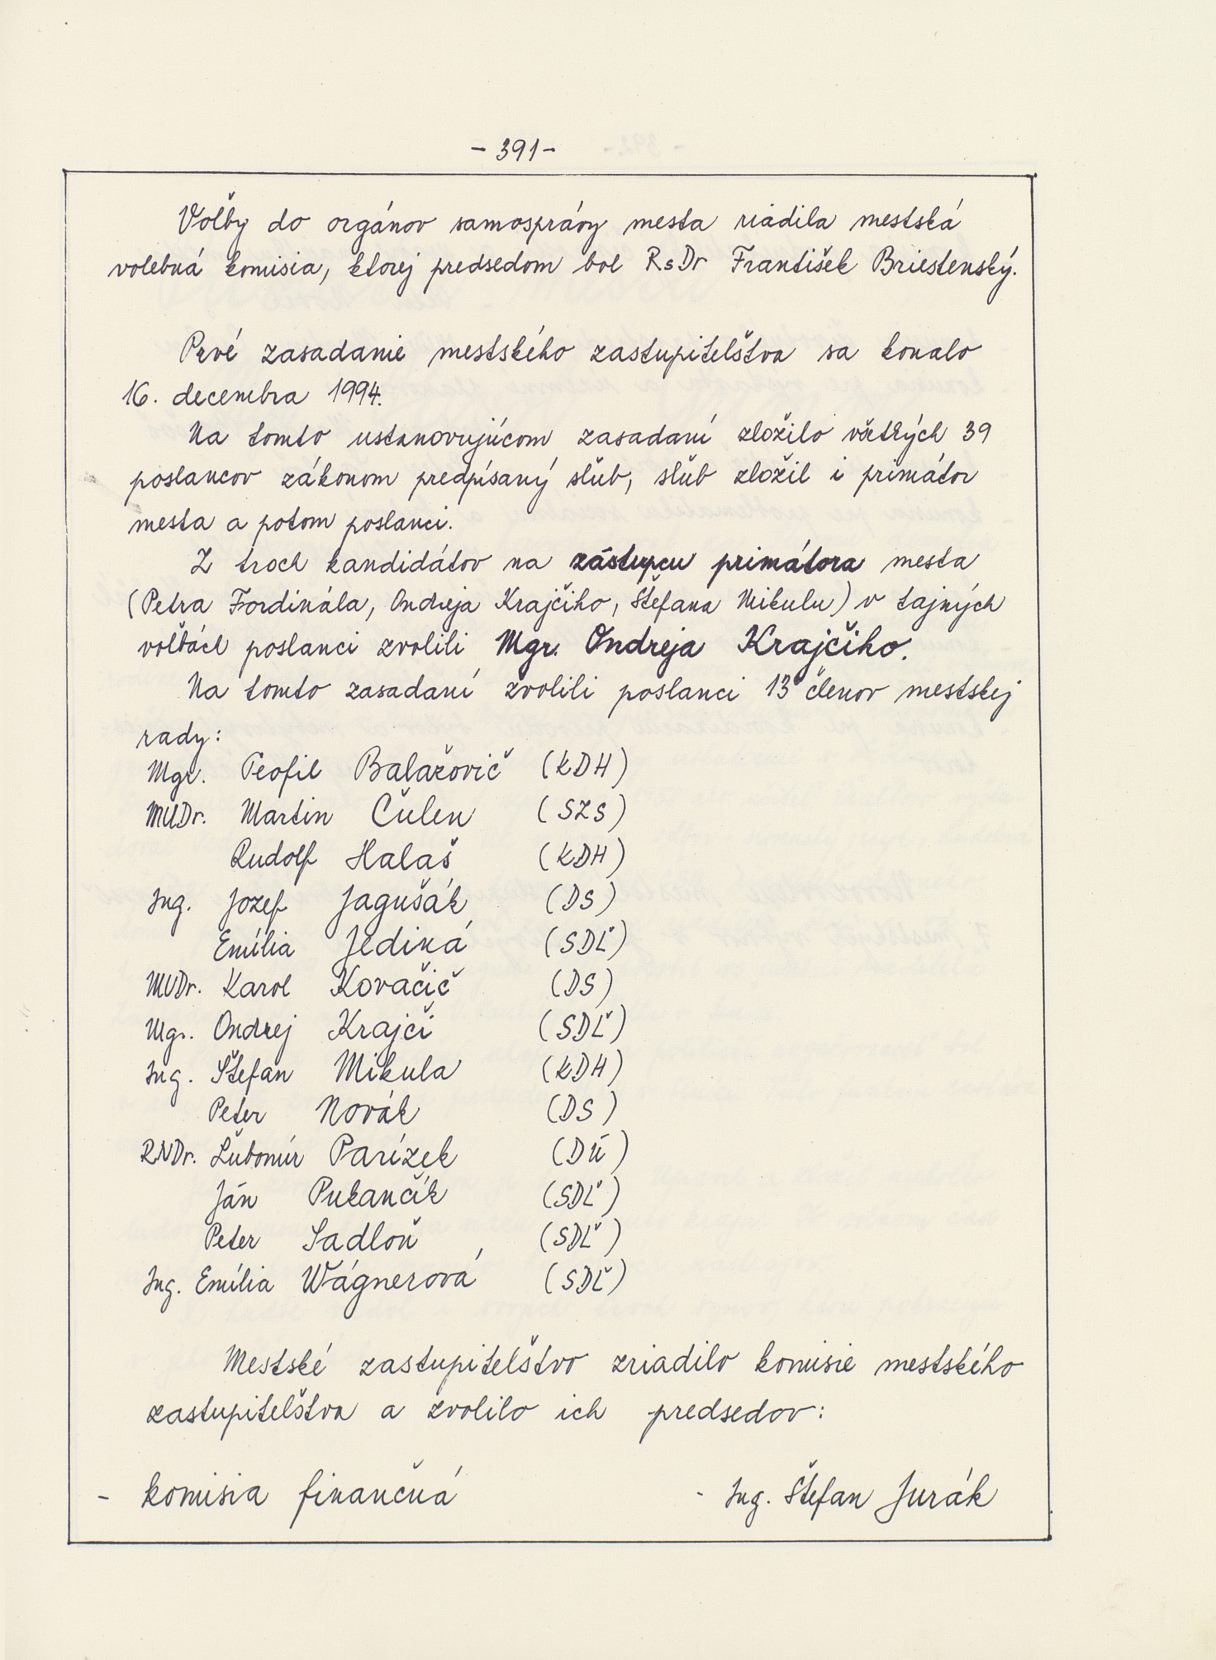 - 391 -
Voľby do orgánov samosprávy mesta riadila mestská
volebná komisia, ktorej predsedom bol RsDr František Briestenský.
Prvé zasadanie mestského zastupiteľstva sa konalo
16. decembra 1994.
Na tomto ustanovujúcom zasadaní zložilo všetkých 39
poslancov zákonom predpísaný sľub, sľub zložil i primátor
mesta a potom poslanci.
Z troch kandidátov na zástupcu primátora mesta
(Petra Fordinála, Ondreja Krajčiho, Štefana Mikulu) v tajných
voľbách poslanci zvolili Mgr. Ondreja Krajčiho.
Na tomto zasadaní zvolili poslanci 13 členov mestskej
rady:
Mgr. Teofil Balažovič (KDH)
MUDr. Martin Čulen (SZS)
Rudolf Halaš (KDH)
Ing. Jozef Jagušák (DS)
Emília Jediná (SDĽ)
MUDr. Karol Kovačič (DS)
Mgr. Ondrej Krajči (SDĽ)
Ing. Štefan Mikula (KDH)
Peter Novák (DS)
RNDr. Ľubomír Parízek (DÚ)
Ján Pukančík (SDĽ)
Peter Sadloň (SDĽ)
Ing. Emília Wágnerová (SDĽ)
Mestské zastupiteľstvo zriadilo komisie mestského
zastupiteľstva a zvolilo ich predsedov:
- komisia finančná - Ing. Štefan Jurák